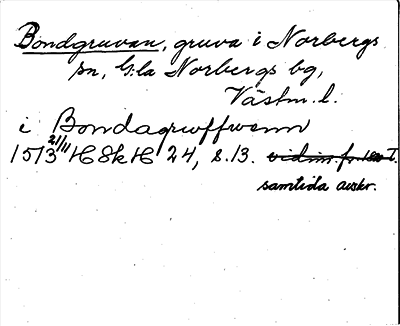 Bondgruvan, gruva i Norbergs
sn, G:la Norbergs bg,
Västm. l.
i Bondagruffwenn
1513 21/11 HSkH 24, s. 13. vidim. fr.
samtida avskr.